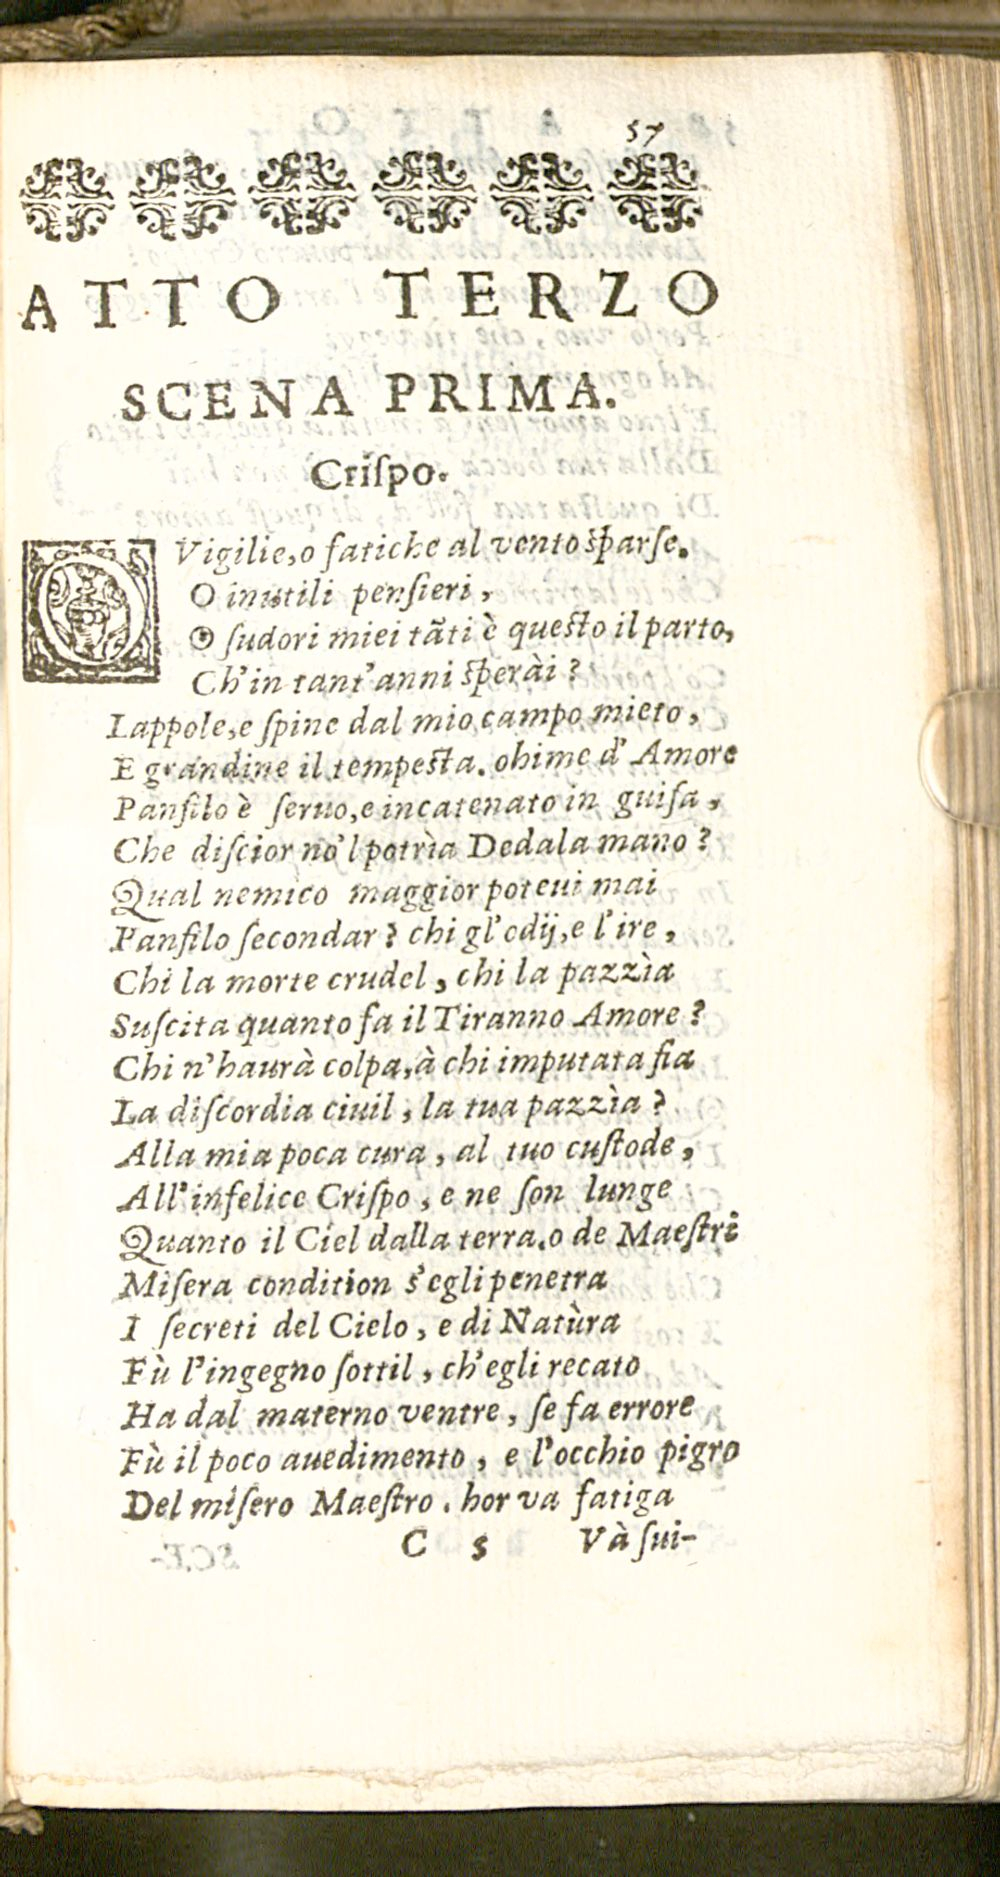 57
ATTO TERZO
SCENA PRIMA.
Criſpo.
O Vigilie, o fatiche al vento ſparſe.
O inutili penſieri,
O ſudori miei tãti è queſto il parto,
Ch'in tant'anni ſperài?
Lappole, e ſpine dal mio campo mieto,
E grandine il tempeſta. ohime d'Amore
Panfilo è ſeruo, e incatenato in guiſa,
Che diſcior no'l potrìa Dedala mano?
Qual nemico maggior poteui mai
Panfilo ſecondar? chi gl'odij, e l'ire,
Chi la morte crudel, chi la pazzìa
Suſcita quanto fa il Tiranno Amore?
Chi n'haurà colpa, à chi imputata fia
La diſcordia ciuil, la tua pazzìa?
Alla mia poca cura, al tuo cuſtode,
All'infelice Criſpo, e ne ſon lunge
Quanto il Ciel dalla terra. o de Maeſtri
Miſera condition s'egli penetra
I ſecreti del Cielo, e di Natùra
Fù l'ingegno ſottil, ch'egli recato
Ha dal materno ventre, ſe fa errore
Fù il poco auedimento, e l'occhio pigro
Del miſero Maeſtro. hor va fatiga
C 5 Và ſui-